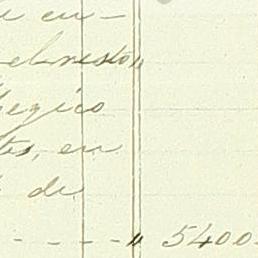 en-
el resto „
Megico
tes, en
de
- - - - „ 5400